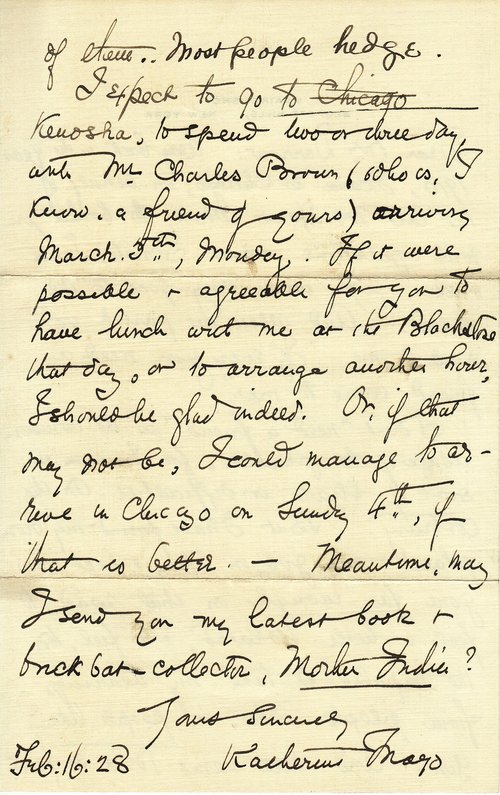 of them.. Most people hedge.
I expect to go to Chicago
Kenosha, to spend two or three day,
with Mr Charles Brown (who is, I
know, a friend of yours) arriving
March. 5th, Monday,. If it were
possible + agreeable for you to
have lunch with me at the Blackstone
that day, or to arrange another hour,
I should be glad indeed. Or, if that
may not be, I could manage to ar-
rive in Chicago on Sunday 4th, if
that is better. — Meantime, may
I send you my latest book +
brick bat-collector, Mother India?
Yours Sincerely
Feb:16:28 Katherine Mayo